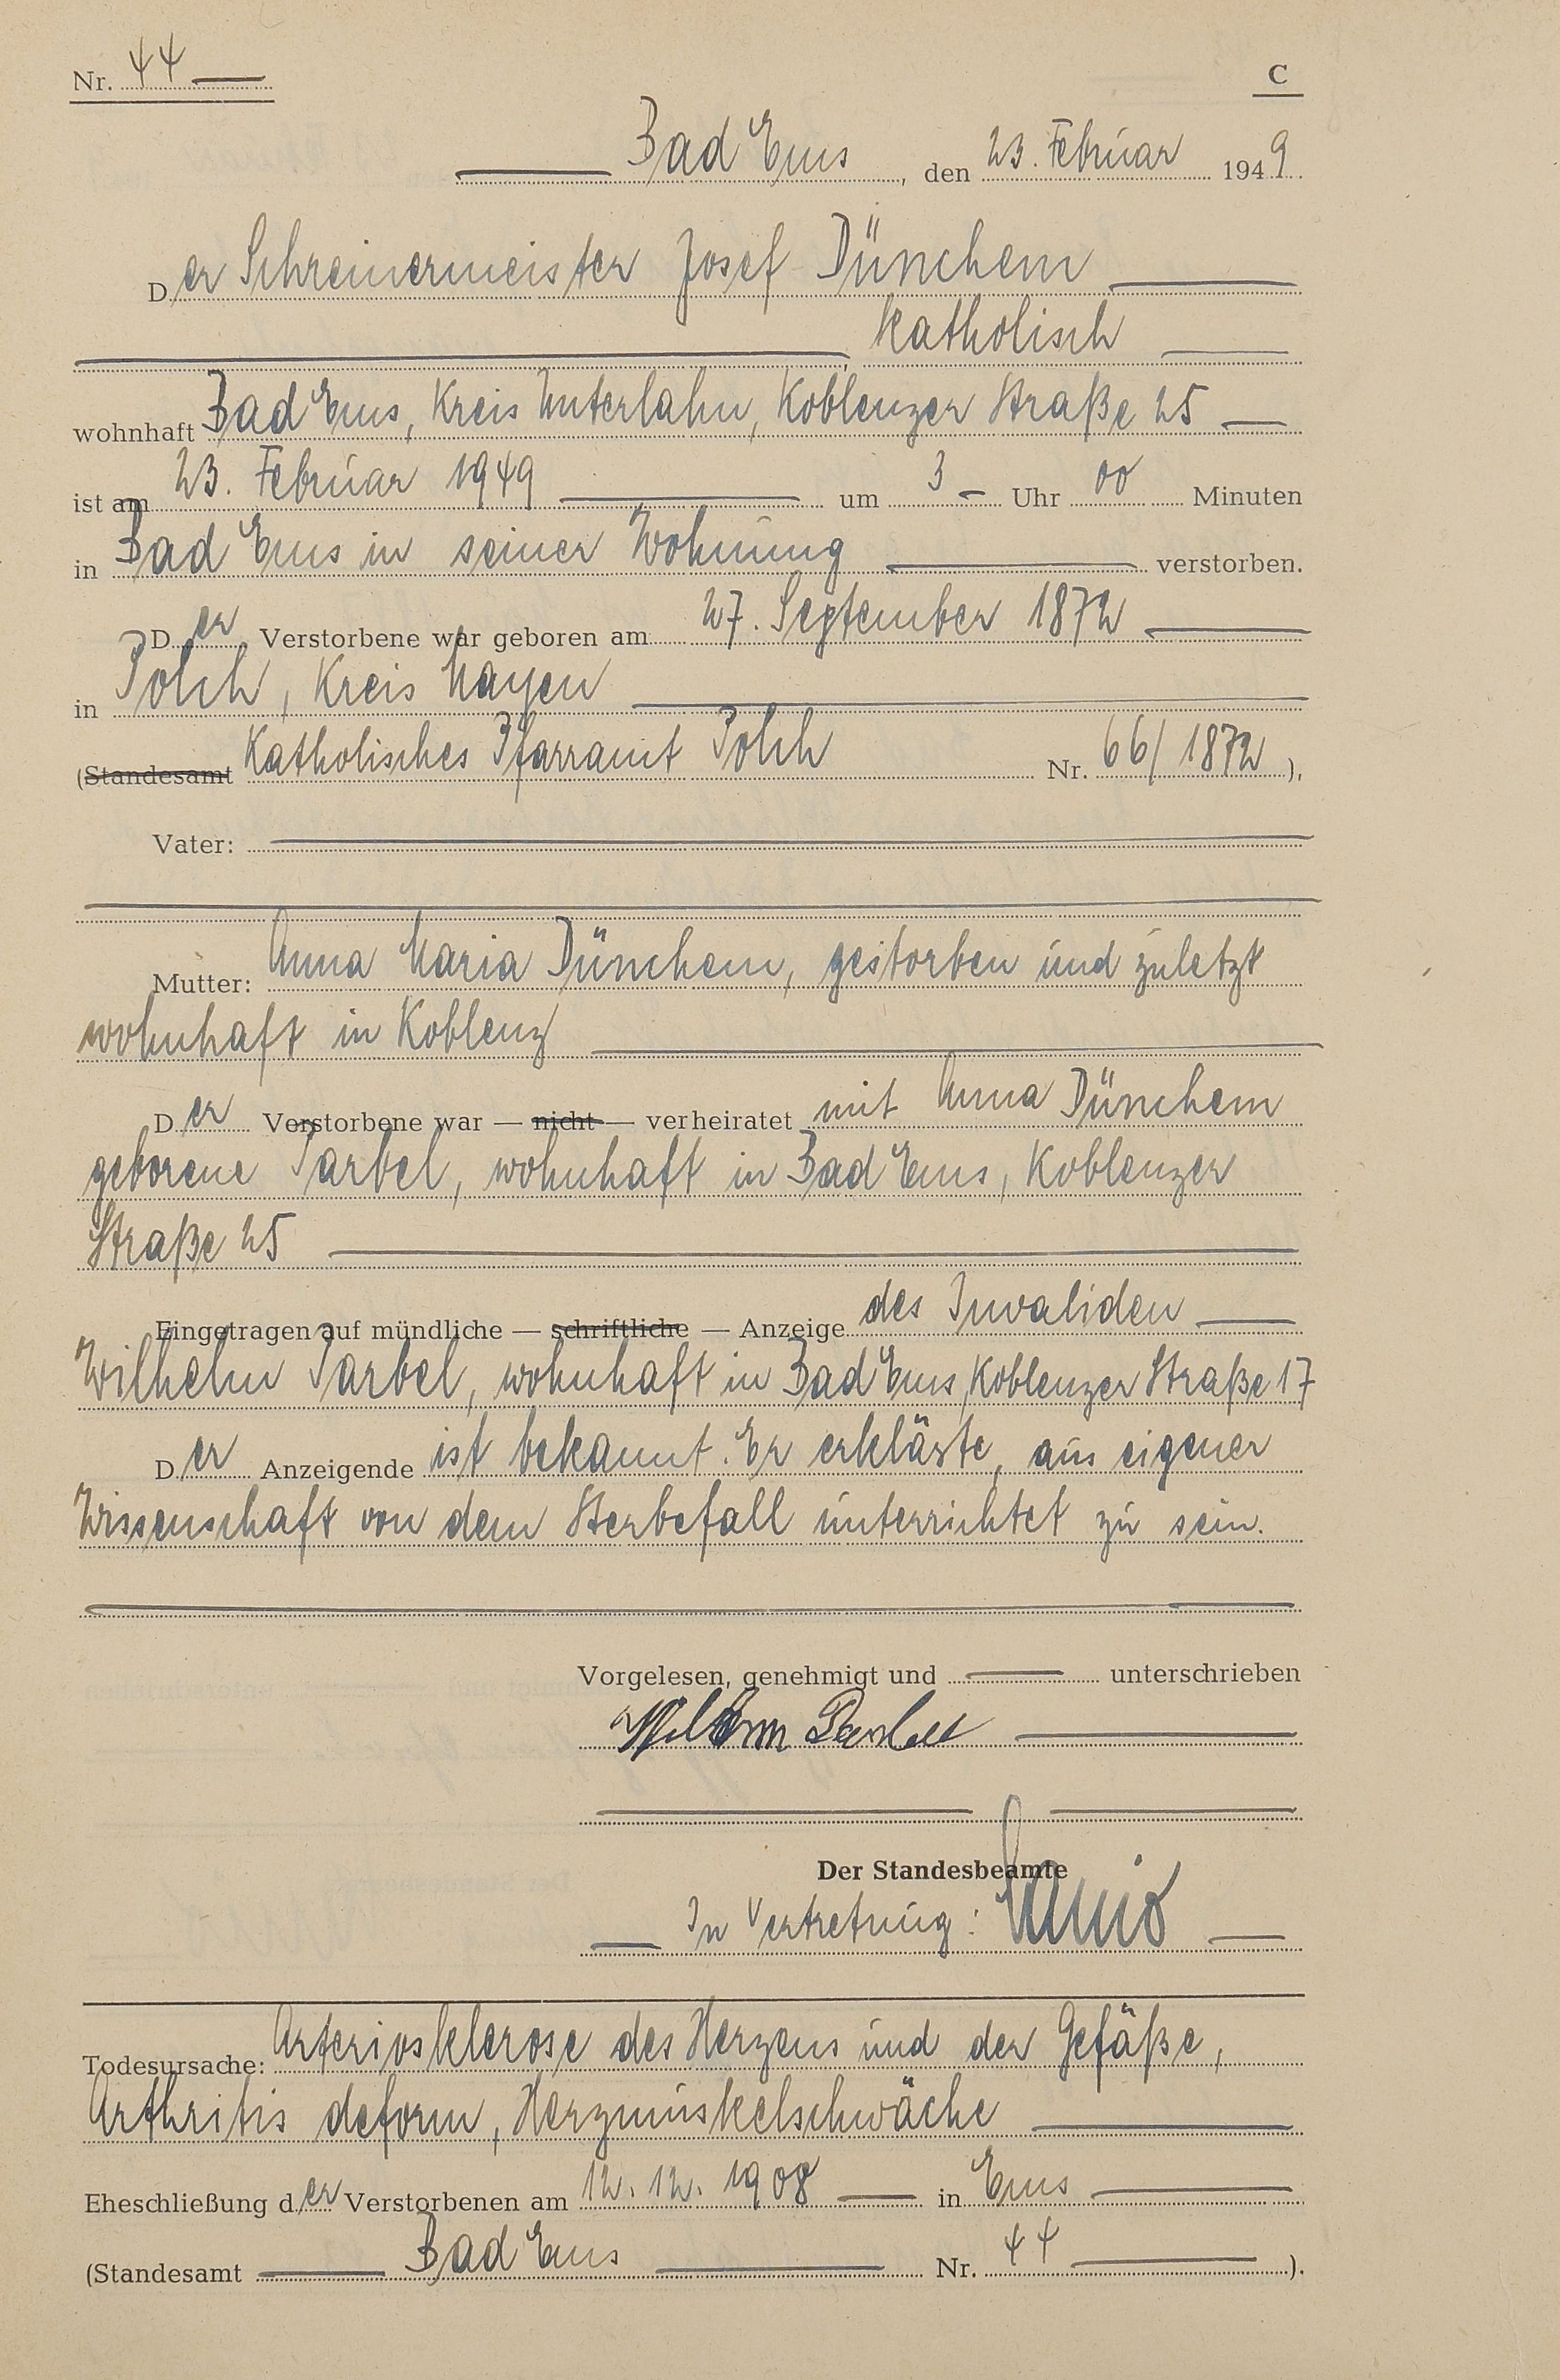 Nr. 44
C
Bad Ems, den 23. Februar 1949
Der Schreinermeister Josef Dünchem
katholisch
wohnhaft Bad Ems, Kreis Unterlahn, Koblenzer Straße 25
ist am 23. Februar 1949 um 3 Uhr 00 Minuten
in Bad Ems in seiner Wohnung verstorben.
Der Verstorbene war geboren am 27. September 1872
in Polch, Kreis Mayen
(Standesamt Katholisches Pfarramt Polch Nr. 66/1872),
Vater:
Mutter: Anna Maria Dünchem, gestorben und zuletzt
wohnhaft in Koblenz
Der Verstorbene war — nicht — verheiratet mit Anna Dünchem
geborene Parbel, wohnhaft in Bad Ems, Koblenzer
Straße 25
Eingetragen auf mündliche — schriftliche — Anzeige des Invaliden
Wilhelm Parbel, wohnhaft in Bad Ems, Koblenzer Straße 17
Der Anzeigende ist bekannt. Er erklärte, aus eigener
Wissenschaft von dem Sterbefall unterrichtet zu sein.
Vorgelesen, genehmigt und unterschrieben
Wilhelm Parbel
Der Standesbeamte
In Vertretung:
Todesursache: Arteriosklerose des Herzens und der Gefäße,
Arthritis deform, Herzmuskelschwäche
Eheschließung der Verstorbenen am 12. 12. 1908 in Ems
(Standesamt Bad Ems Nr. 44).